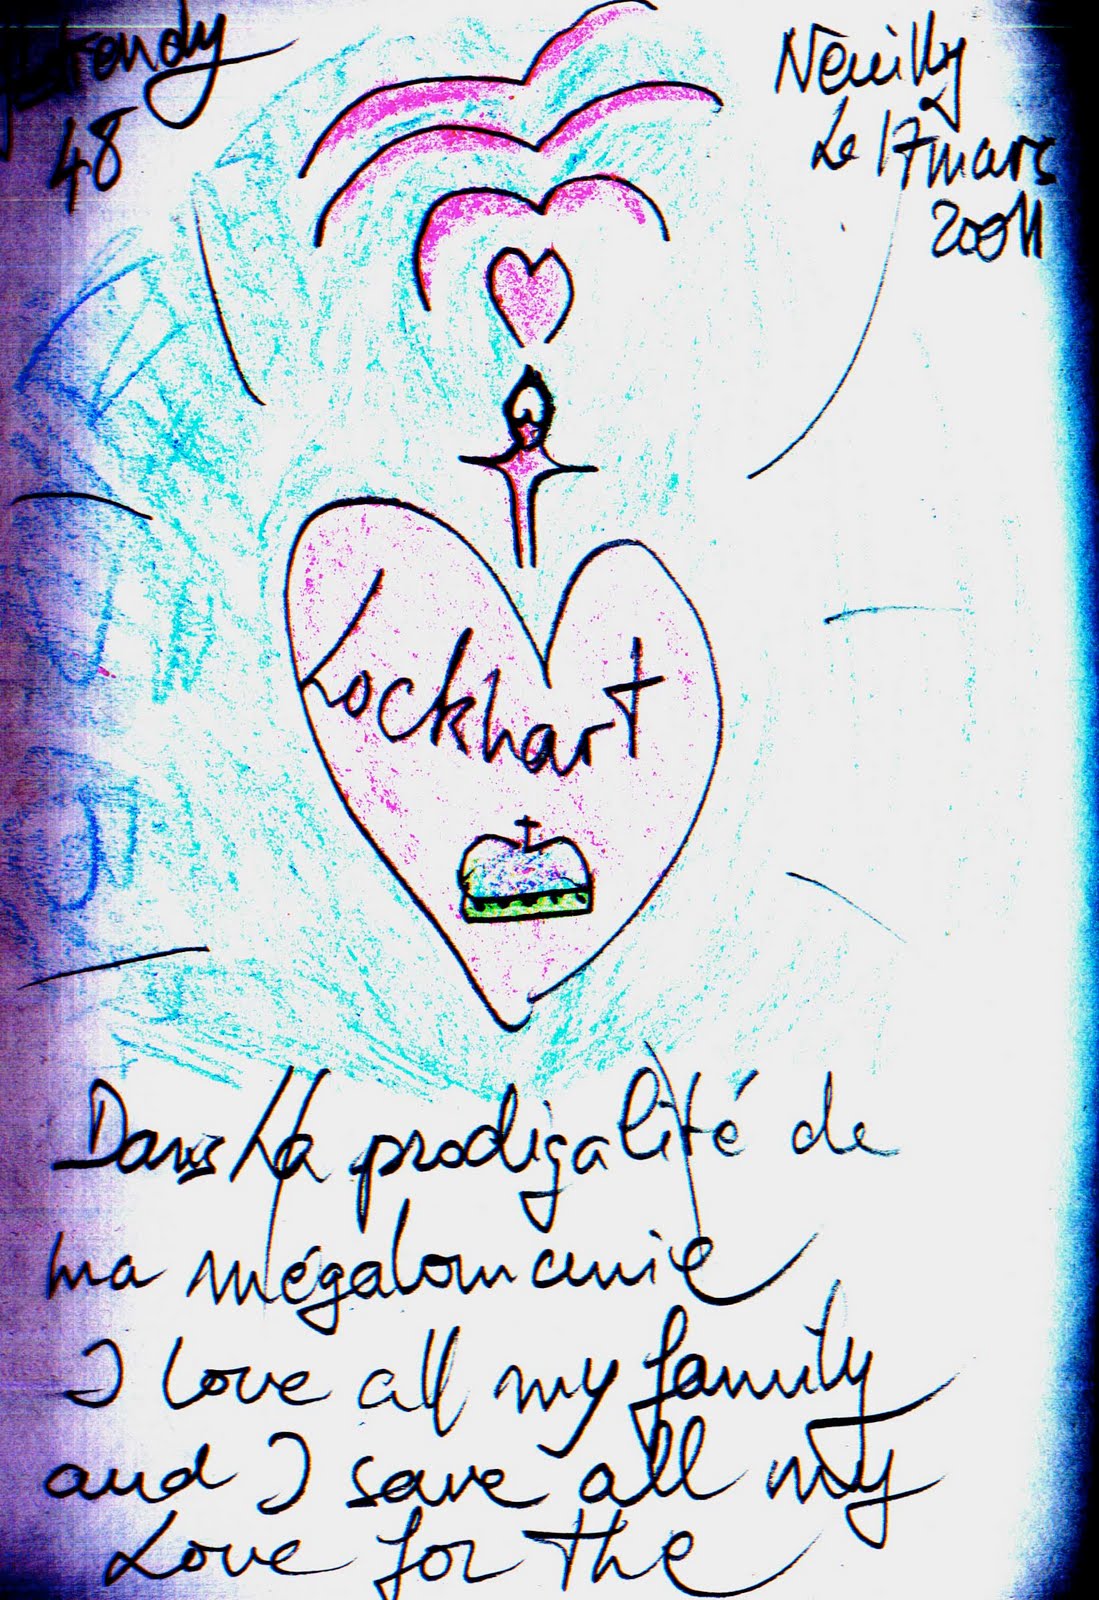 48
Neuilly
Le 17 mars
2001
Lockhart
Dans la prodigalité de
ma mégalomanie
I love all my family
and I save all my
Love for the